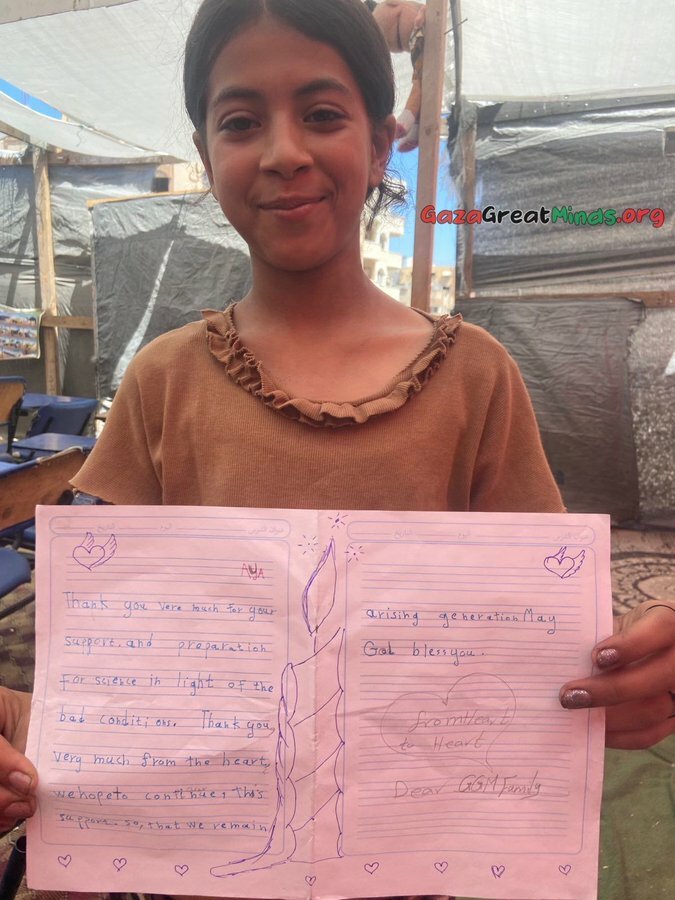 GazaGreatMinds.org
AYA
Thank you vere much for your
support. and preparation
For science in light of the
bad conditions. Thank you
very much from the heart,
we hope to continue, this
support. so, that we remain
arising generation May
God bless you.
from Heart
to Heart
Dear GGM Family